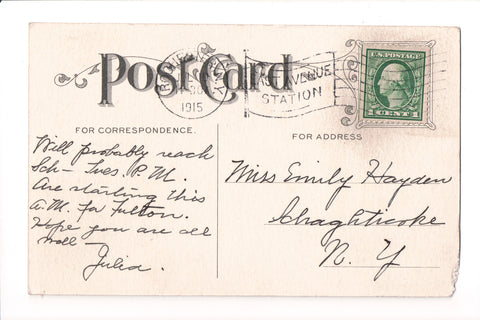 Post Card
1915
EAST AVENUE
STATION
U.S. POSTAGE
1 CENT 1
FOR CORRESPONDENCE.
FOR ADDRESS
Will probably reach
Sch- Tues. P.M.
Are starting this
A.M. for Fulton.
Hope you are all
well -
Julia.
Miss Emily Hayden
Schaghticoke
N. Y